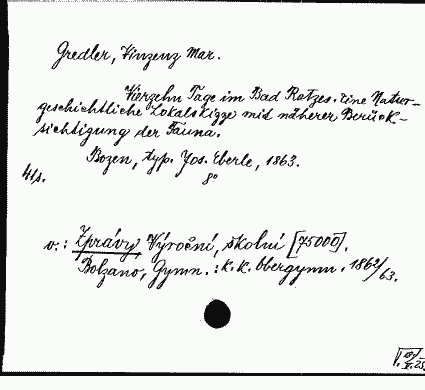 Gredler, Vinzenz Mar.
Vierzehn Tage im Bad Ratzes. Eine Natur-
geschichtliche Lokalskizze mit näherer Berück-
sichtigung der Fauna.
Bozen, typ. Jos. Eberle, 1863.
41 s. 8°
v.: Zprávy Výroční, školní [75000].
Bolzano, Gymn.: K. K. Obergymn. 1862/63.